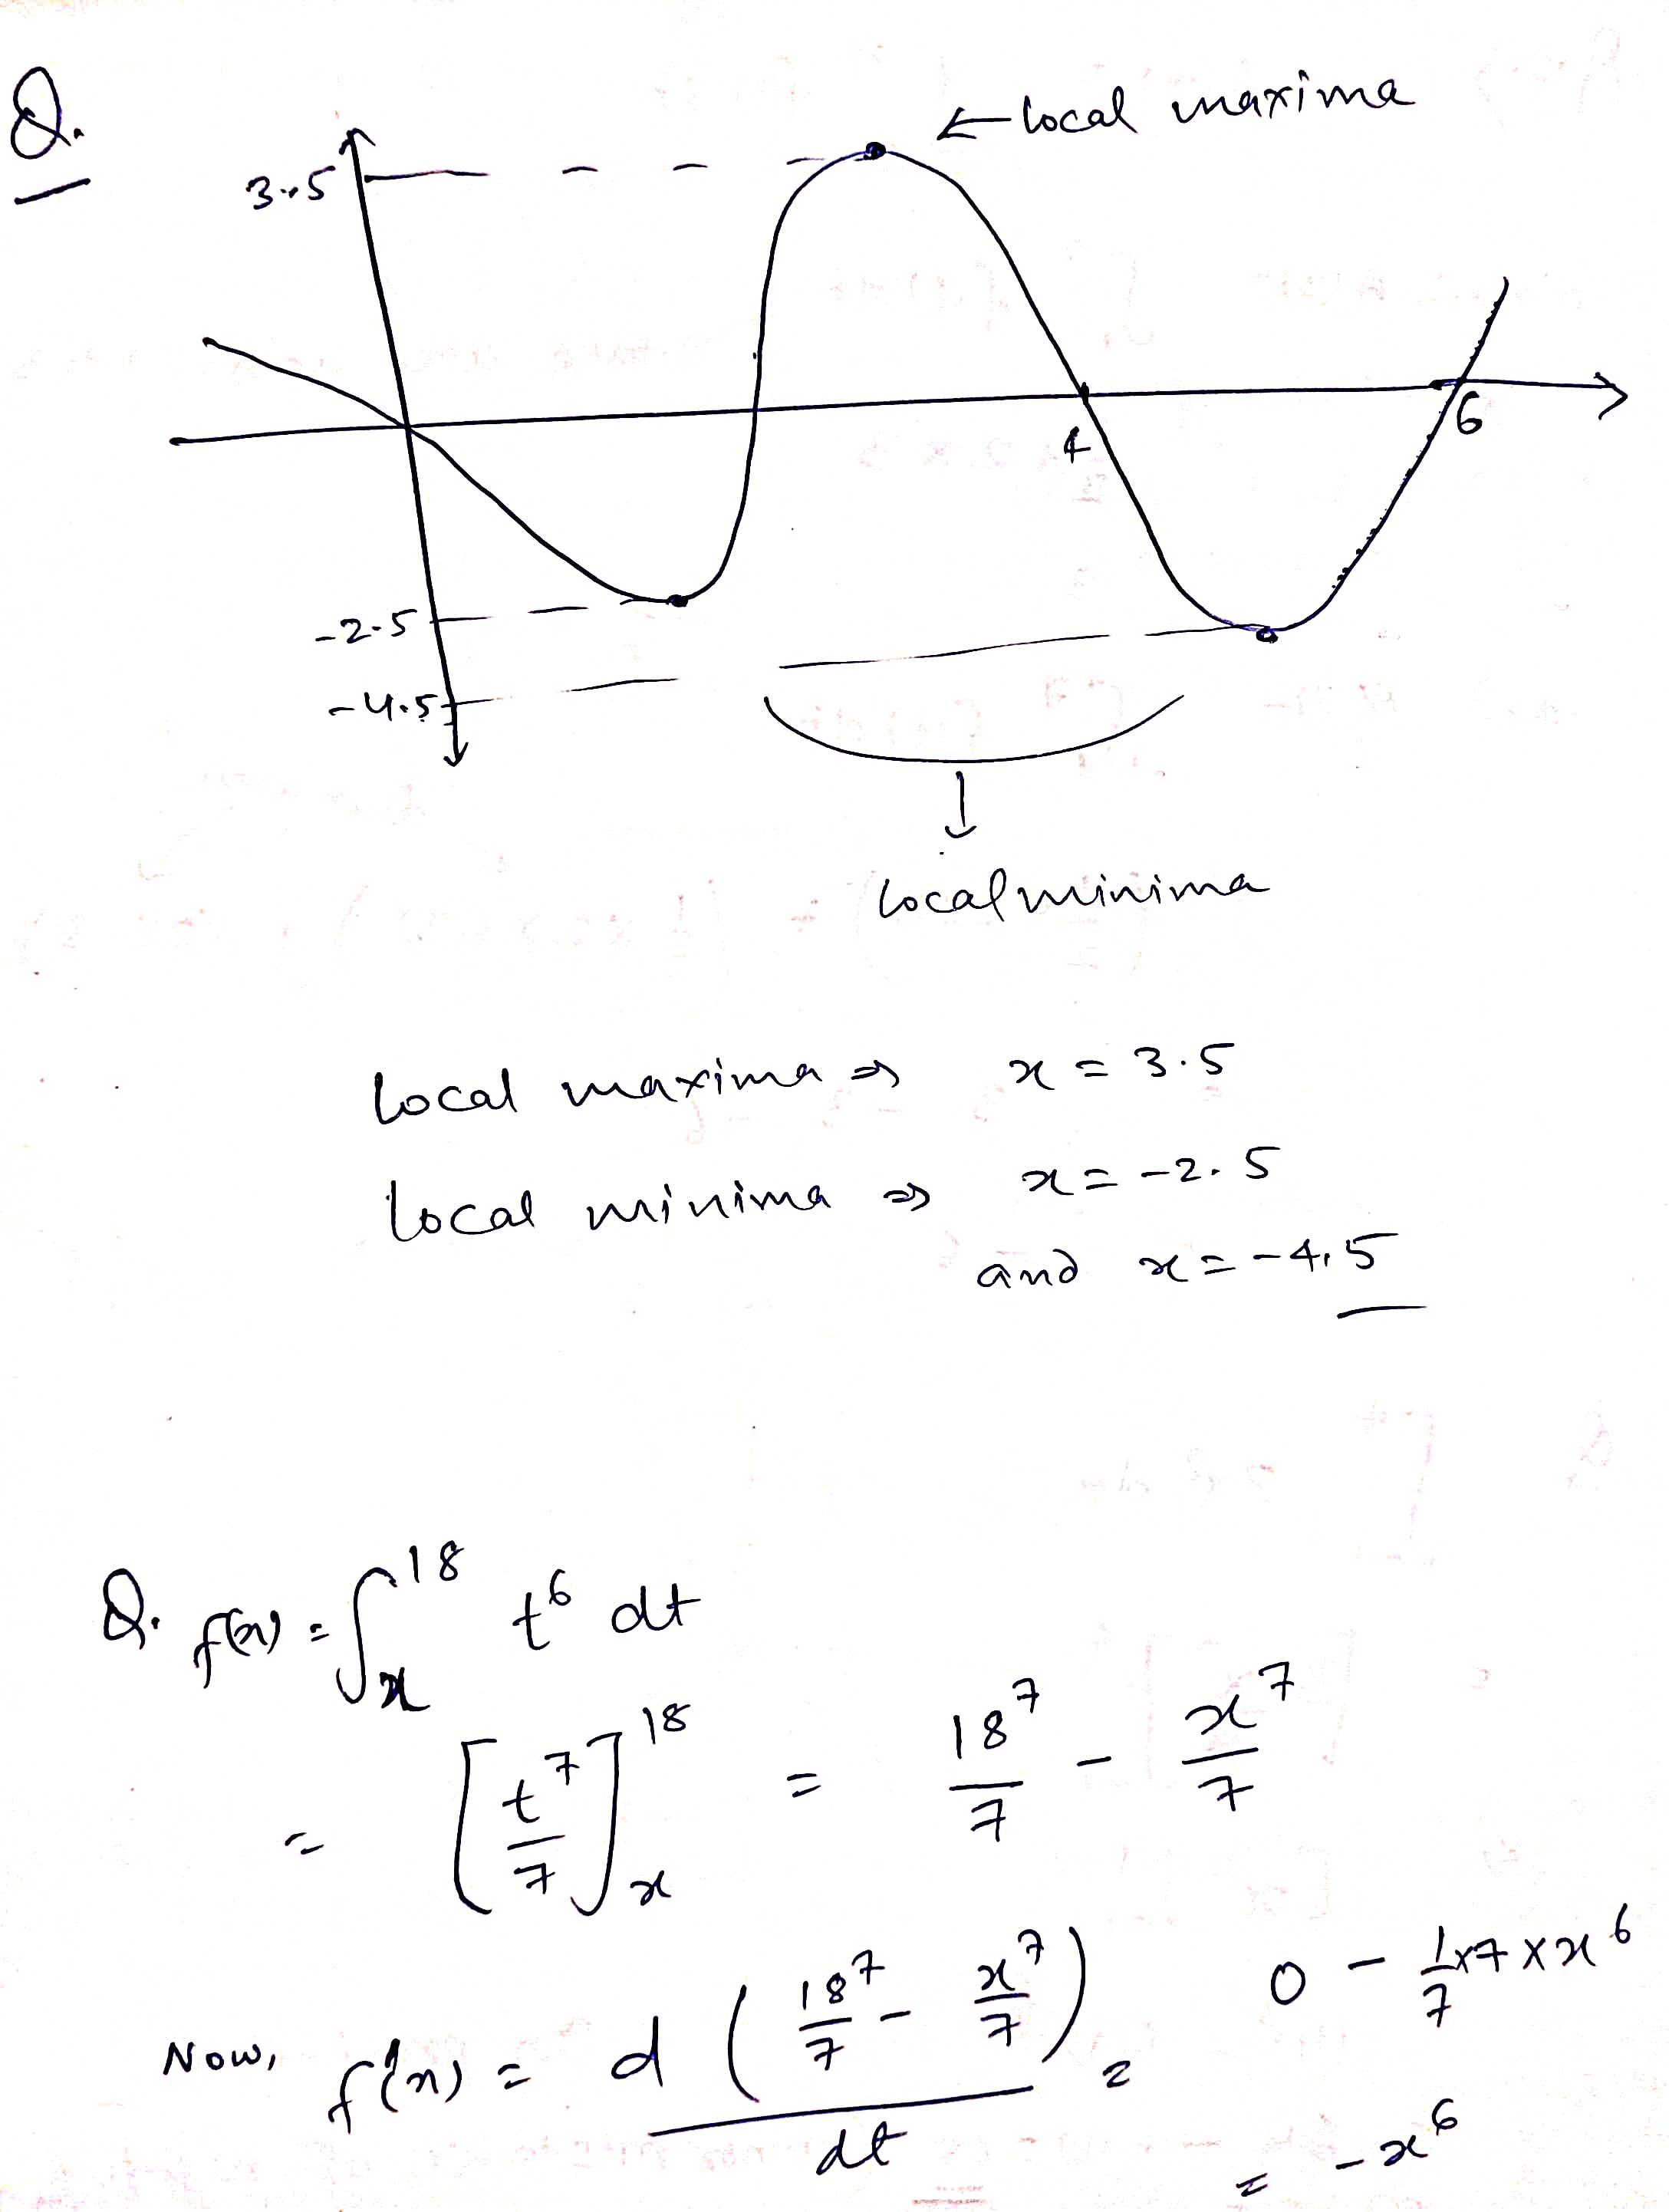 Q.
← local maxima
3.5
4
6
-2.5
-4.5
↓
local minima
local maxima ⇒ x = 3.5
local minima ⇒ x = -2.5
and x = -4.5
Q. f(x) = ∫_x^18 t^6 dt
= [t^7/7]_x^18 = 18^7/7 - x^7/7
Now, f'(x) = d(18^7/7 - x^7/7)/dt = 0 - 1/7 × 7 × x^6
= -x^6